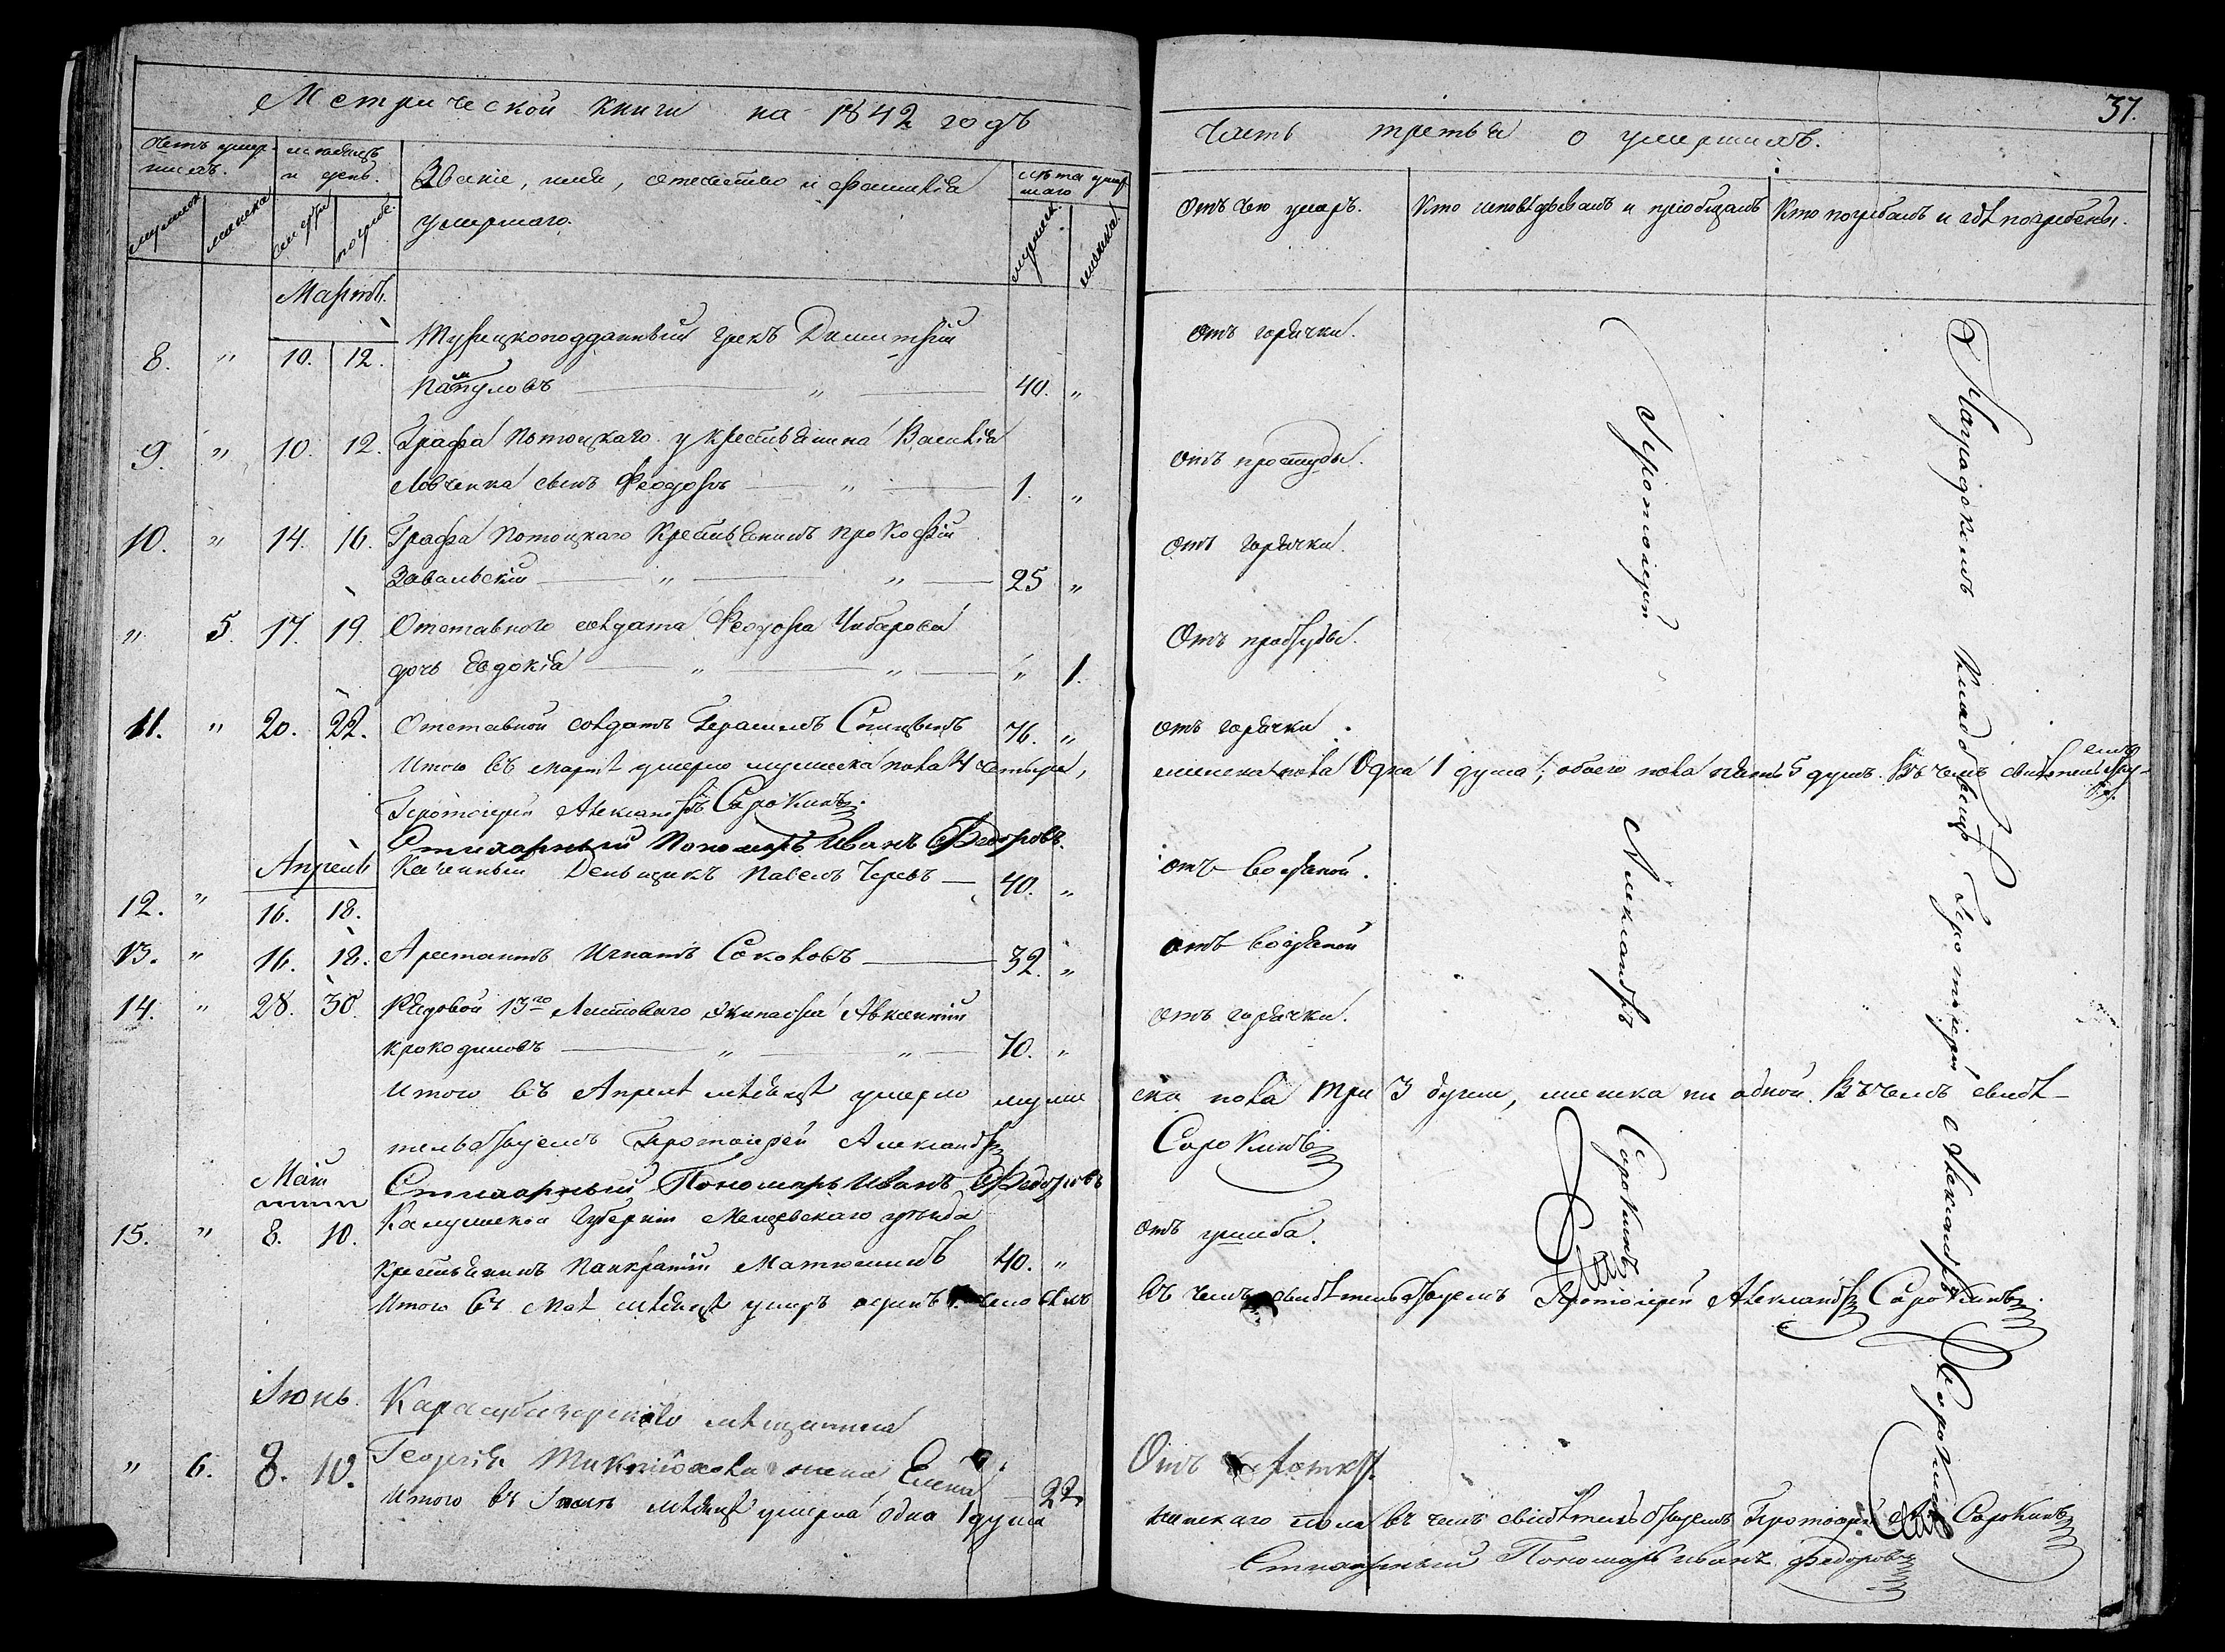 Метрической книги на 1842 годъ
Счетъ умершихъ.
мѣсяцъ и день.
Званіе, имя, отечество и фамилія умершаго.
лѣта умершаго
мужеска
женска
смерти
погребе.
мужеск.
женска.
Мартъ.
8. " 10. 12. Турецкоподданный грекъ Димитрій
40. "
9. " 10. 12. Графа Потоцкаго у крестьянина Василія
Ловченка сынъ Феодоръ " 1. "
10. " 14. 16. Графа Потоцкаго крестьянинъ Прокофій
Завальскій " " 25 "
" 5. 17. 19. Отставного солдата Феодора Чибарова
дочь Евдокія " " " 1.
11. " 20. 22. Отставной солдатъ Герасимъ Спицынъ 76. "
Итого въ мартѣ умерло мужеска пола 4 четыре,
Протоіерей Александръ Сорокинъ.
Стихарный Пономарь Иванъ Федоровъ.
Апрель
12. " 16. 18. Казенный Деньщикъ Павелъ 40. "
13. " 16. 18. Арестантъ Игнатъ Соколовъ 32. "
14. " 28. 30. Рядовой 13го Ластоваго экипажа Авксентий
Крокодиловъ " " 70. "
Итого въ Апрелѣ мѣсяцѣ умерло муже
тельствуемъ Протоіерей Александръ
Стихарный Пономарь Иванъ Федоровъ
Май
15. " 8. 10. Калужской Губерніи Мещевскаго уѣзда
крестьянинъ Панкратій Матюшинъ 40. "
Итого въ маѣ мѣсяцѣ умеръ одинъ человѣкъ
Іюнь.
" 6. 8. 10. Карасубазарскаго мѣщанина
Георгія жена Елена 22.
Итого въ Іюнѣ мѣсяцѣ умерла одна 1 душа
37.
Часть третья о умершихъ.
Отъ чего умеръ.
Кто исповѣдывалъ и пріобщалъ
Кто погребалъ и гдѣ погребены.
Отъ горячки.
Отъ простуды.
Отъ горячки.
Отъ простуды.
Отъ горячки.
женска пола Одна 1 душа; обоего пола пять 5 душъ. Въ чемъ свидѣтельствуемъ
Отъ водяной.
Отъ водяной
Отъ горячки.
ска пола три 3 души, женска ни одной. Въ чемъ свидѣ-
Сорокинъ
Отъ ушиба.
въ чемъ свидѣтельствуемъ Протоіерей Александръ Сорокинъ
Отъ
женскаго пола въ чемъ свидѣтельствуемъ Протоіерей Сорокинъ
Стихарный Пономарь Иванъ Федоровъ
Протоіерей Александръ Сорокинъ
На градскомъ кладбищѣ Протоіерей Александръ Сорокинъ